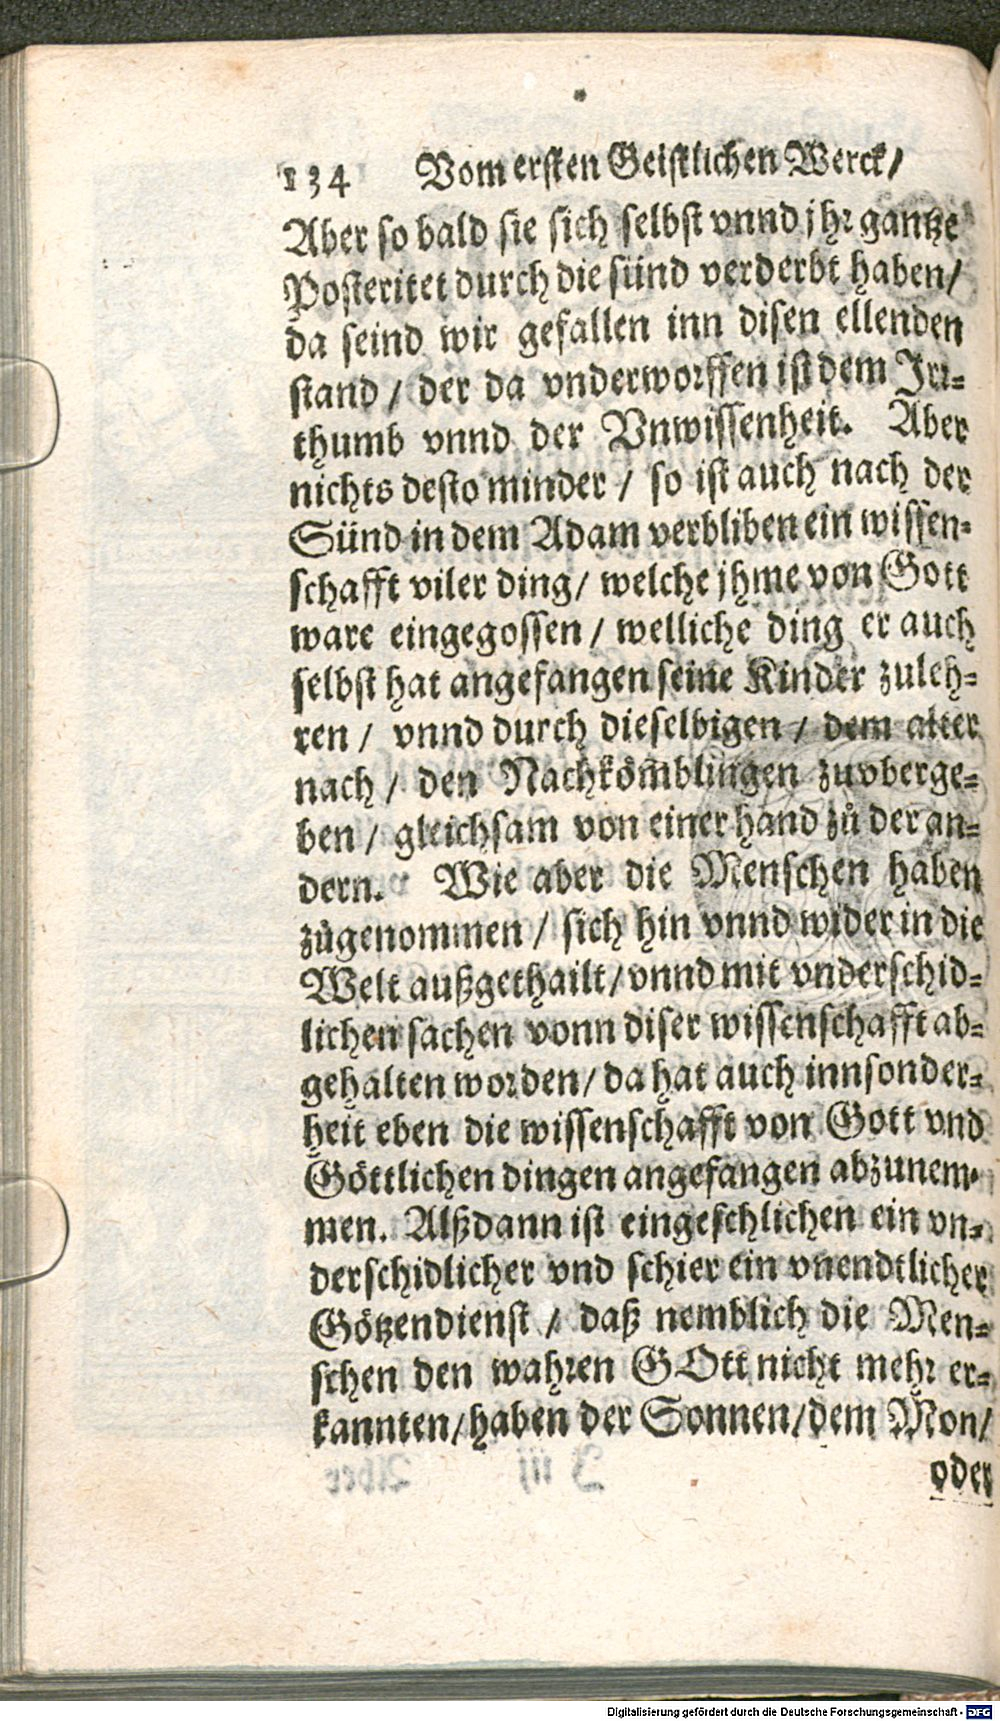 134 Vom ersten Geistlichen Werck/
Aber so bald sie sich selbst vnnd jhr gantze
Posteritet durch die sünd verderbt haben/
da seind wir gefallen inn disen ellenden
stand / der da vnderworffen ist dem Irr-
thumb vnnd der Vnwissenheit. Aber
nichts desto minder / so ist auch nach der
Sünd in dem Adam verbliben ein wissen-
schafft viler ding/ welche jhme von Gott
ware eingegossen / welliche ding er auch
selbst hat angefangen seine Kinder zuleh-
ren / vnnd durch dieselbigen / dem alter
nach / den Nachkömblingen zuvberge-
ben / gleichsam von einer hand zů der an-
dern. Wie aber die Menschen haben
zůgenommen / sich hin vnnd wider in die
Welt außgethailt/ vnnd mit vnderschid-
lichen sachen vonn diser wissenschafft ab-
gehalten worden/ da hat auch innsonder-
heit eben die wissenschafft von Gott vnd
Göttlichen dingen angefangen abzunem-
men. Alßdann ist eingeschlichen ein vn-
derschidlicher vnd schier ein vnendtlicher
Götzendienst / daß nemblich die Men-
schen den wahren GOtt nicht mehr er-
kannten/ haben der Sonnen/ dem Mon/
oder
Digitalisierung gefördert durch die Deutsche Forschungsgemeinschaft - DFG